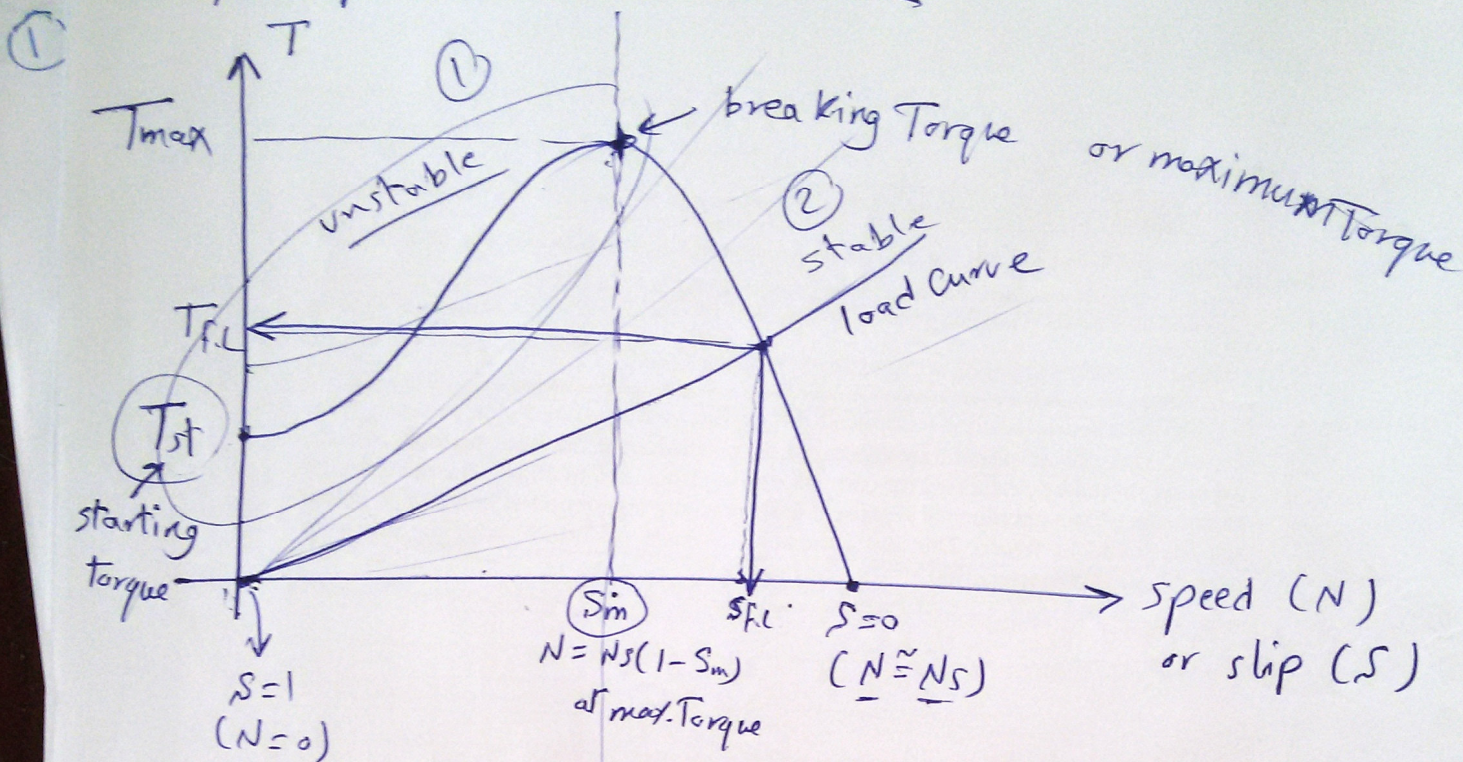 ①
T
①
Tmax
breaking Torque
or maximum Torque
unstable
②
stable
load curve
Tf.L
Tst
starting
torque
Sm
Sf.L
S=0
speed (N)
N = Ns(1-Sm)
(N≅Ns)
or slip (S)
S=1
at max.Torque
(N=0)